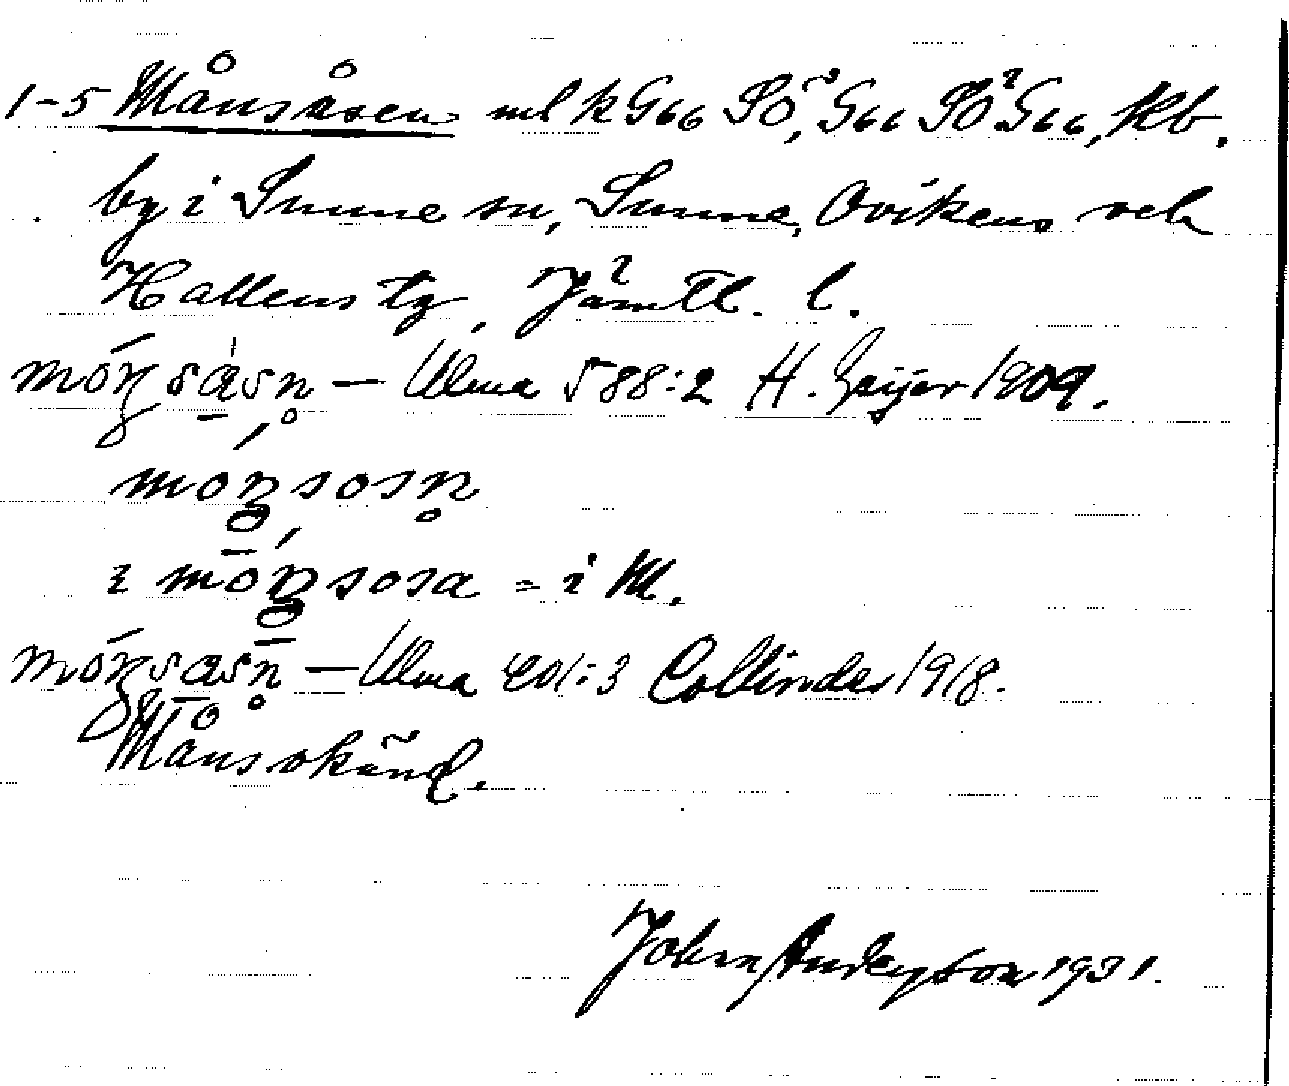 1-5 Månsåsen ml k G66 SÖ, G66 SO G66, kb.
by i Sunne sn, Sunne, Ovikens och
Hallens tg, Jämtl. l.
móŋsåsn — Ulma 588:2 H. Geijer 1909.
moŋsosn
i móŋsosa = i M.
móŋsasn — Ulma 401:3 Collinder 1918.
Månsokänd.
John Anderson 1931.